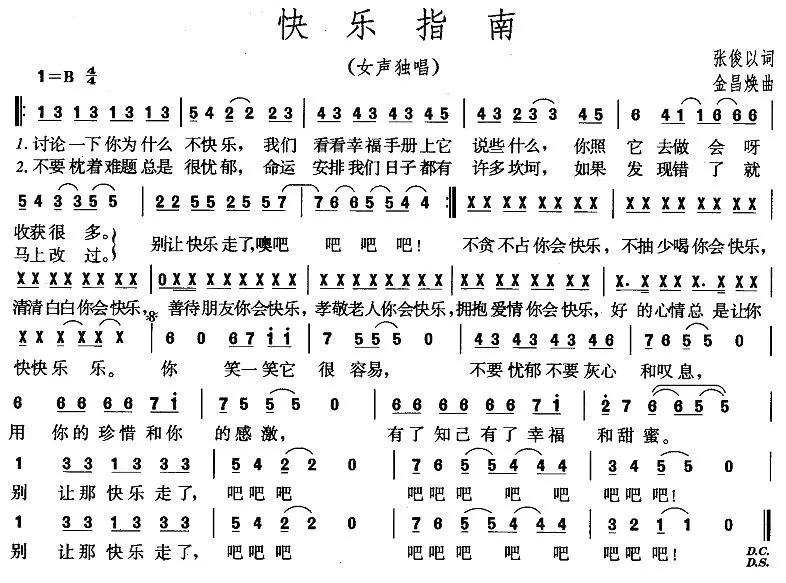 快乐指南
(女声独唱)
张俊以词
金昌焕曲
1=B 4/4
13 13 13 13 | 5 4 2 2 23 | 43 43 43 43 | 45 4323 3 45 | 6 41 16 66
1.讨论一下你为什么 不快乐，我们 看看幸福手册上它 说些什么，你照 它 去做 会 呀
2.不要枕着难题总是 很忧郁，命运 安排我们日子都有 许多坎坷，如果 发 现错 了 就
54 3 35 5 | 22 55 25 57 | 7665 5 44 :‖ XX XX XX XX | XX XX XX XX
收获很 多。 别让快乐走了，噢吧 吧 吧 吧！ 不贪不占你会快乐，不抽少喝你会快乐，
马上改 过。
XX XX XX XX | 0XXX XX XX | XX XX XX XX | XX XX XX XX | X. XX X. XX
清清白白你会快乐， 善待朋友你会快乐，孝敬老人你会快乐，拥抱爱情你会快乐，好 的心情总 是让你
XX X X X X | 6 0 67 ii | 7 55 5 0 | 43 43 43 46 | 7 6 5 5 0
快快乐 乐。 你 笑一笑它 很 容易， 不要忧郁不要灰心 和叹息，
6 66 66 7i | 75 5 5 0 | 66 66 66 7i | 2 7 66 5 5
用 你的珍惜和你 的感激， 有了知己有了幸福 和甜蜜。
1 33 13 33 | 5 4 2 2 0 | 76 5 5 44 0 | 34 5 5 0
别 让那快乐走了， 吧吧吧 吧吧吧 吧 吧 吧吧吧！
1 33 13 33 | 5 4 2 2 0 | 76 5 5 44 0 | 32 1 1 0 ‖
别 让那快乐走了， 吧吧吧 吧吧吧 吧 吧 吧吧吧！ D.C.
D.S.